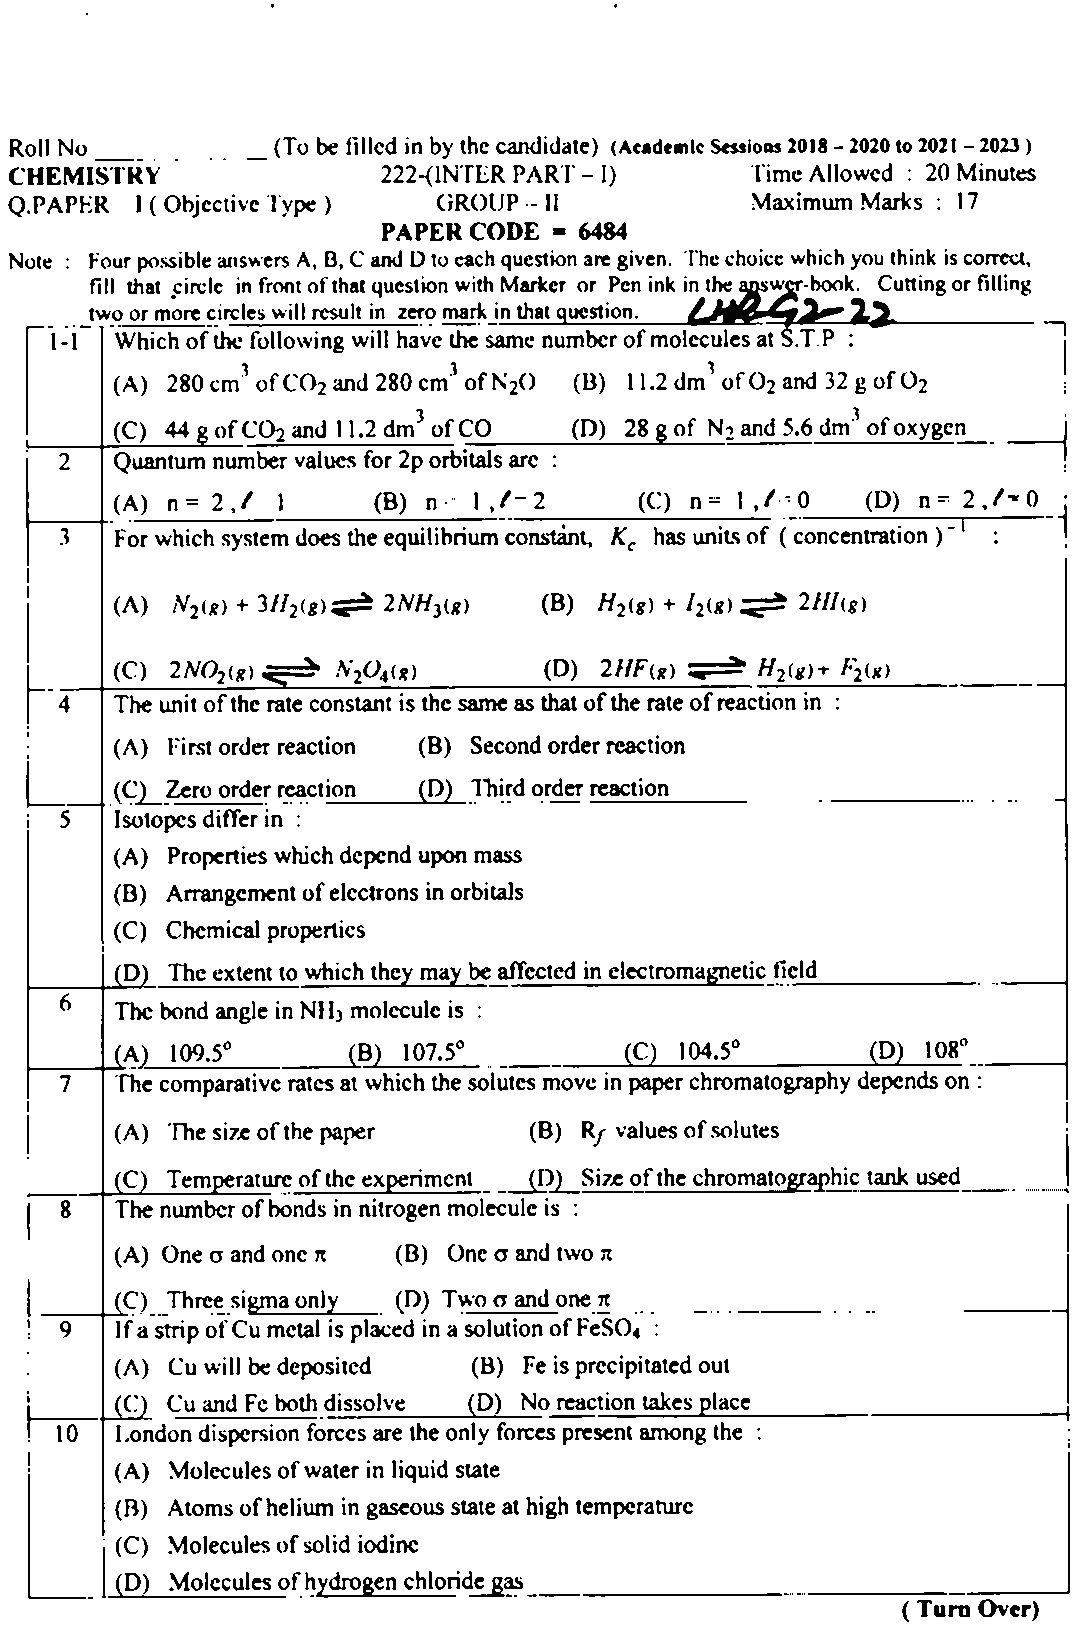 Roll No ________ (To be filled in by the candidate) (Academic Sessions 2018 – 2020 to 2021 – 2023 )
CHEMISTRY 222-(INTER PART – I) Time Allowed : 20 Minutes
Q.PAPER I ( Objective Type ) GROUP – II Maximum Marks : 17
PAPER CODE = 6484
Note : Four possible answers A, B, C and D to each question are given. The choice which you think is correct,
fill that circle in front of that question with Marker or Pen ink in the answer-book. Cutting or filling
two or more circles will result in zero mark in that question. LHR-G2-22
1-1 Which of the following will have the same number of molecules at S.T.P :
(A) 280 cm³ of CO₂ and 280 cm³ of N₂O (B) 11.2 dm³ of O₂ and 32 g of O₂
(C) 44 g of CO₂ and 11.2 dm³ of CO (D) 28 g of N₂ and 5.6 dm³ of oxygen
2 Quantum number values for 2p orbitals are :
(A) n = 2 , ℓ 1 (B) n - 1 , ℓ = 2 (C) n = 1 , ℓ = 0 (D) n = 2 , ℓ = 0
3 For which system does the equilibrium constant, Kc has units of ( concentration )⁻¹ :
(A) N₂(g) + 3H₂(g) ⇌ 2NH₃(g) (B) H₂(g) + I₂(g) ⇌ 2HI(g)
(C) 2NO₂(g) ⇌ N₂O₄(g) (D) 2HF(g) ⇌ H₂(g) + F₂(g)
4 The unit of the rate constant is the same as that of the rate of reaction in :
(A) First order reaction (B) Second order reaction
(C) Zero order reaction (D) Third order reaction
5 Isotopes differ in :
(A) Properties which depend upon mass
(B) Arrangement of electrons in orbitals
(C) Chemical properties
(D) The extent to which they may be affected in electromagnetic field
6 The bond angle in NH₃ molecule is :
(A) 109.5° (B) 107.5° (C) 104.5° (D) 108°
7 The comparative rates at which the solutes move in paper chromatography depends on :
(A) The size of the paper (B) Rf values of solutes
(C) Temperature of the experiment (D) Size of the chromatographic tank used
8 The number of bonds in nitrogen molecule is :
(A) One σ and one π (B) One σ and two π
(C) Three sigma only (D) Two σ and one π
9 If a strip of Cu metal is placed in a solution of FeSO₄ :
(A) Cu will be deposited (B) Fe is precipitated out
(C) Cu and Fe both dissolve (D) No reaction takes place
10 London dispersion forces are the only forces present among the :
(A) Molecules of water in liquid state
(B) Atoms of helium in gaseous state at high temperature
(C) Molecules of solid iodine
(D) Molecules of hydrogen chloride gas
( Turn Over)